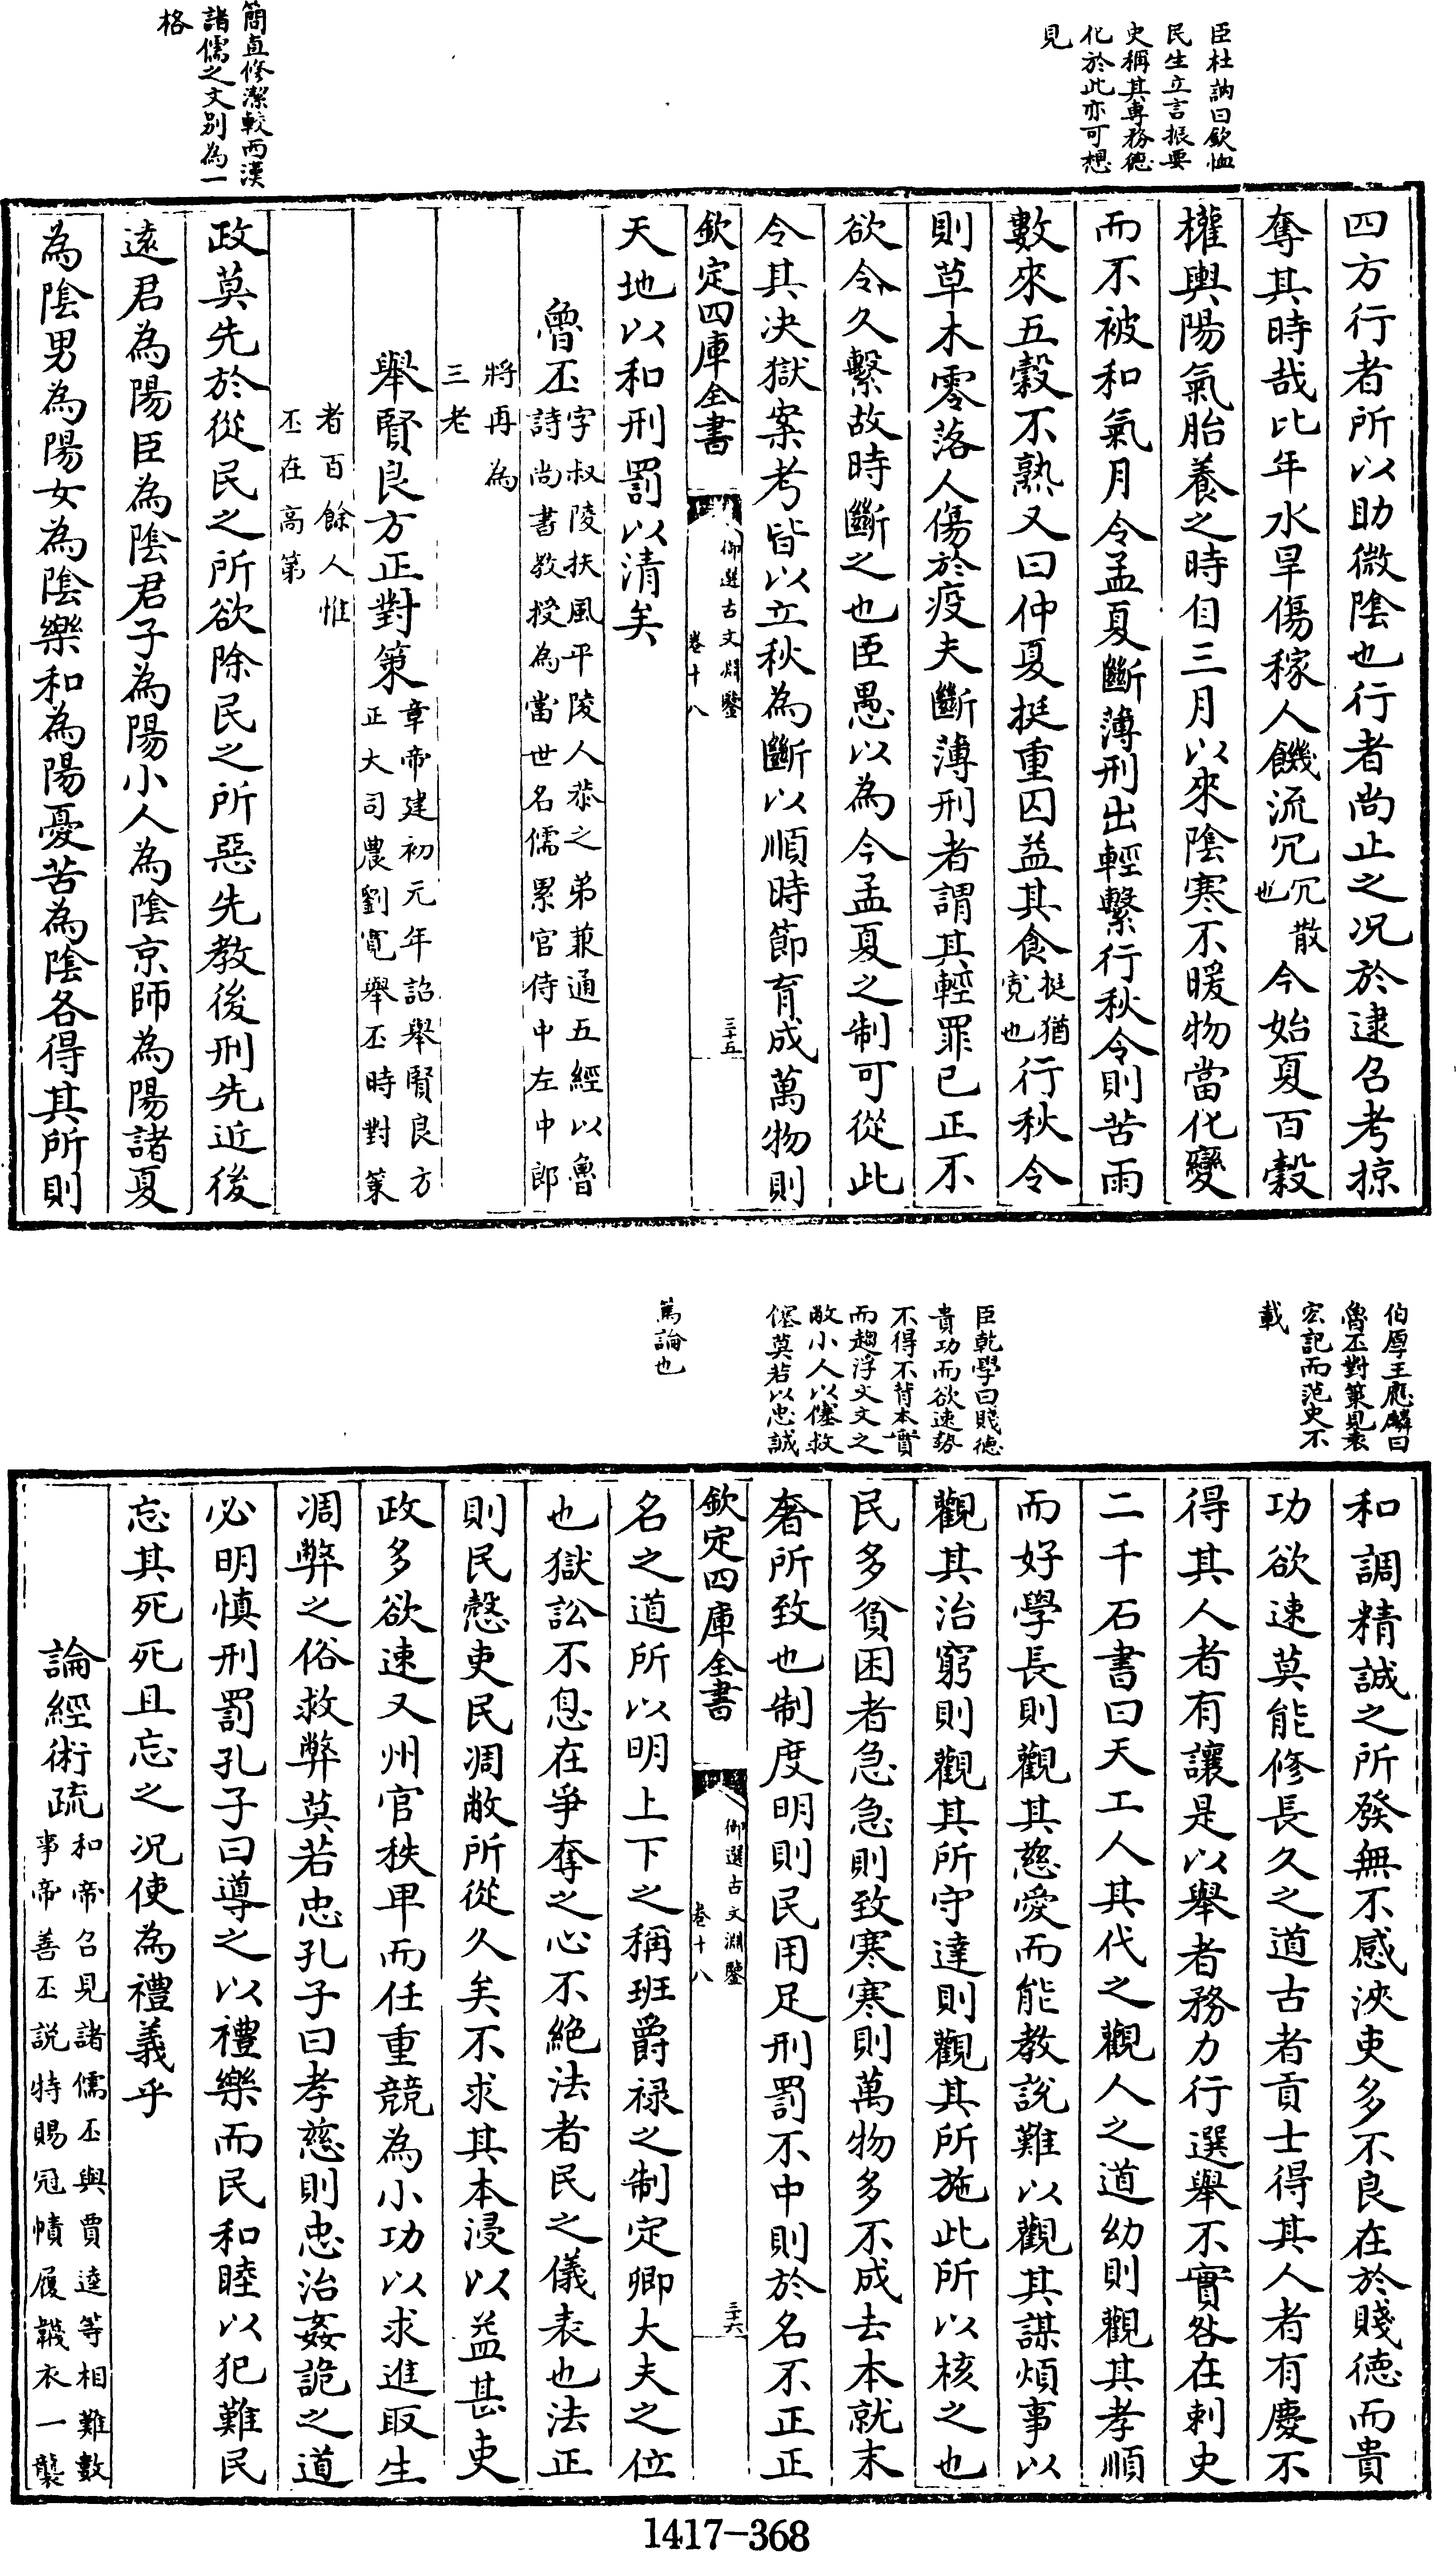 臣杜訥曰欽恤
民生立言振要
史稱其専務德
化於此亦可想
見
簡直修潔較兩漢
諸儒之文别為一
格
四方行者所以助微隂也行者尚止之况於逮召考掠
奪其時哉比年水旱傷稼人饑流冗冗散也今始夏百穀
權輿陽氣胎養之時自三月以來隂寒不暖物當化變
而不被和氣月令孟夏斷薄刑出輕繫行秋令則苦雨
數來五穀不熟又曰仲夏挺重囚益其食挺猶寛也行秋令
則草木零落人傷於疫夫斷薄刑者謂其輕罪已正不
欲令久繫故時斷之也臣愚以為今孟夏之制可從此
令其决獄案考皆以立秋為斷以順時節育成萬物則
欽定四庫全書
御選古文淵鑒
卷十八
三十五
天地以和刑罰以清矣
魯丕字叔陵扶風平陵人恭之弟兼通五經以魯
詩尚書教授為當世名儒累官侍中左中郎
將再為
三老
舉賢良方正對策章帝建初元年詔舉賢良方
正大司農劉寛舉丕時對策
者百餘人惟
丕在高第
政莫先於從民之所欲除民之所惡先教後刑先近後
遠君為陽臣為隂君子為陽小人為隂京師為陽諸夏
為隂男為陽女為隂樂和為陽憂苦為隂各得其所則
伯厚王應麟曰
魯丕對策見袁
宏記而范史不
載
臣乾學曰賤德
貴功而欲速勢
不得不背本實
而趨浮文文之
敝小人以僿救
僿莫若以忠誠
篤論也
和調精誠之所發無不感浹吏多不良在於賤德而貴
功欲速莫能修長久之道古者貢士得其人者有慶不
得其人者有讓是以舉者務力行選舉不實咎在刺史
二千石書曰天工人其代之觀人之道幼則觀其孝順
而好學長則觀其慈愛而能教説難以觀其謀煩事以
觀其治窮則觀其所守達則觀其所施此所以核之也
民多貧困者急急則致寒寒則萬物多不成去本就末
奢所致也制度明則民用足刑罰不中則於名不正正
欽定四庫全書
御選古文淵鑒
卷十八
三十六
名之道所以明上下之稱班爵禄之制定卿大夫之位
也獄訟不息在爭奪之心不絶法者民之儀表也法正
則民慤吏民凋敝所從久矣不求其本浸以益甚吏
政多欲速又州官秩卑而任重競為小功以求進取生
凋弊之俗救弊莫若忠孔子曰孝慈則忠治姦詭之道
必明慎刑罰孔子曰導之以禮樂而民和睦以犯難民
忘其死死且忘之况使為禮義乎
論經術疏和帝召見諸儒丕與賈逵等相難數
事帝善丕説特賜冠幘履韈衣一襲
1417-368